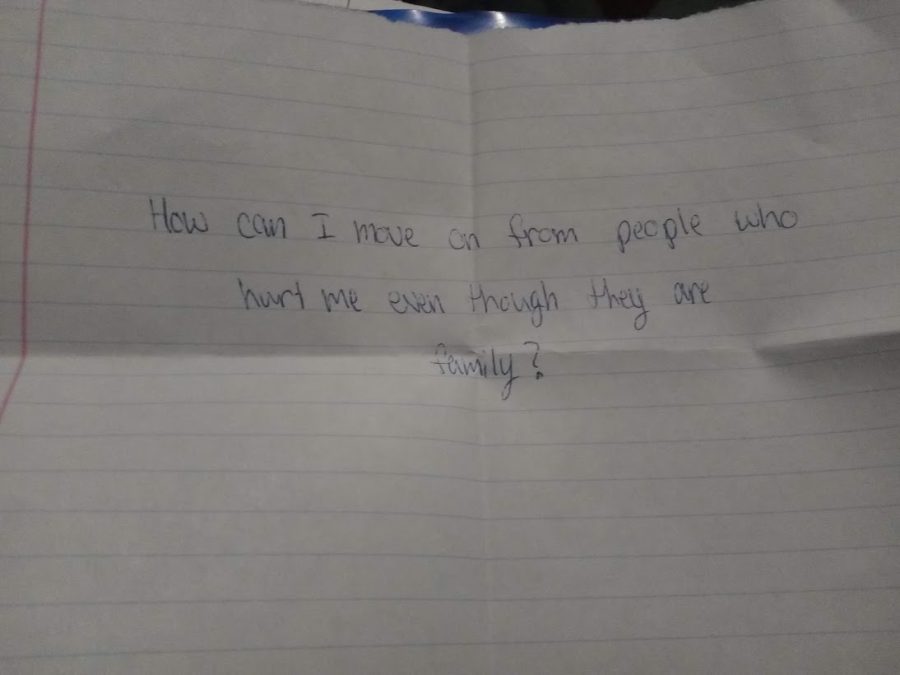 How can I move on from people who
hurt me even though they are
family?